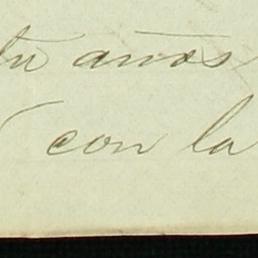 tu años
con la